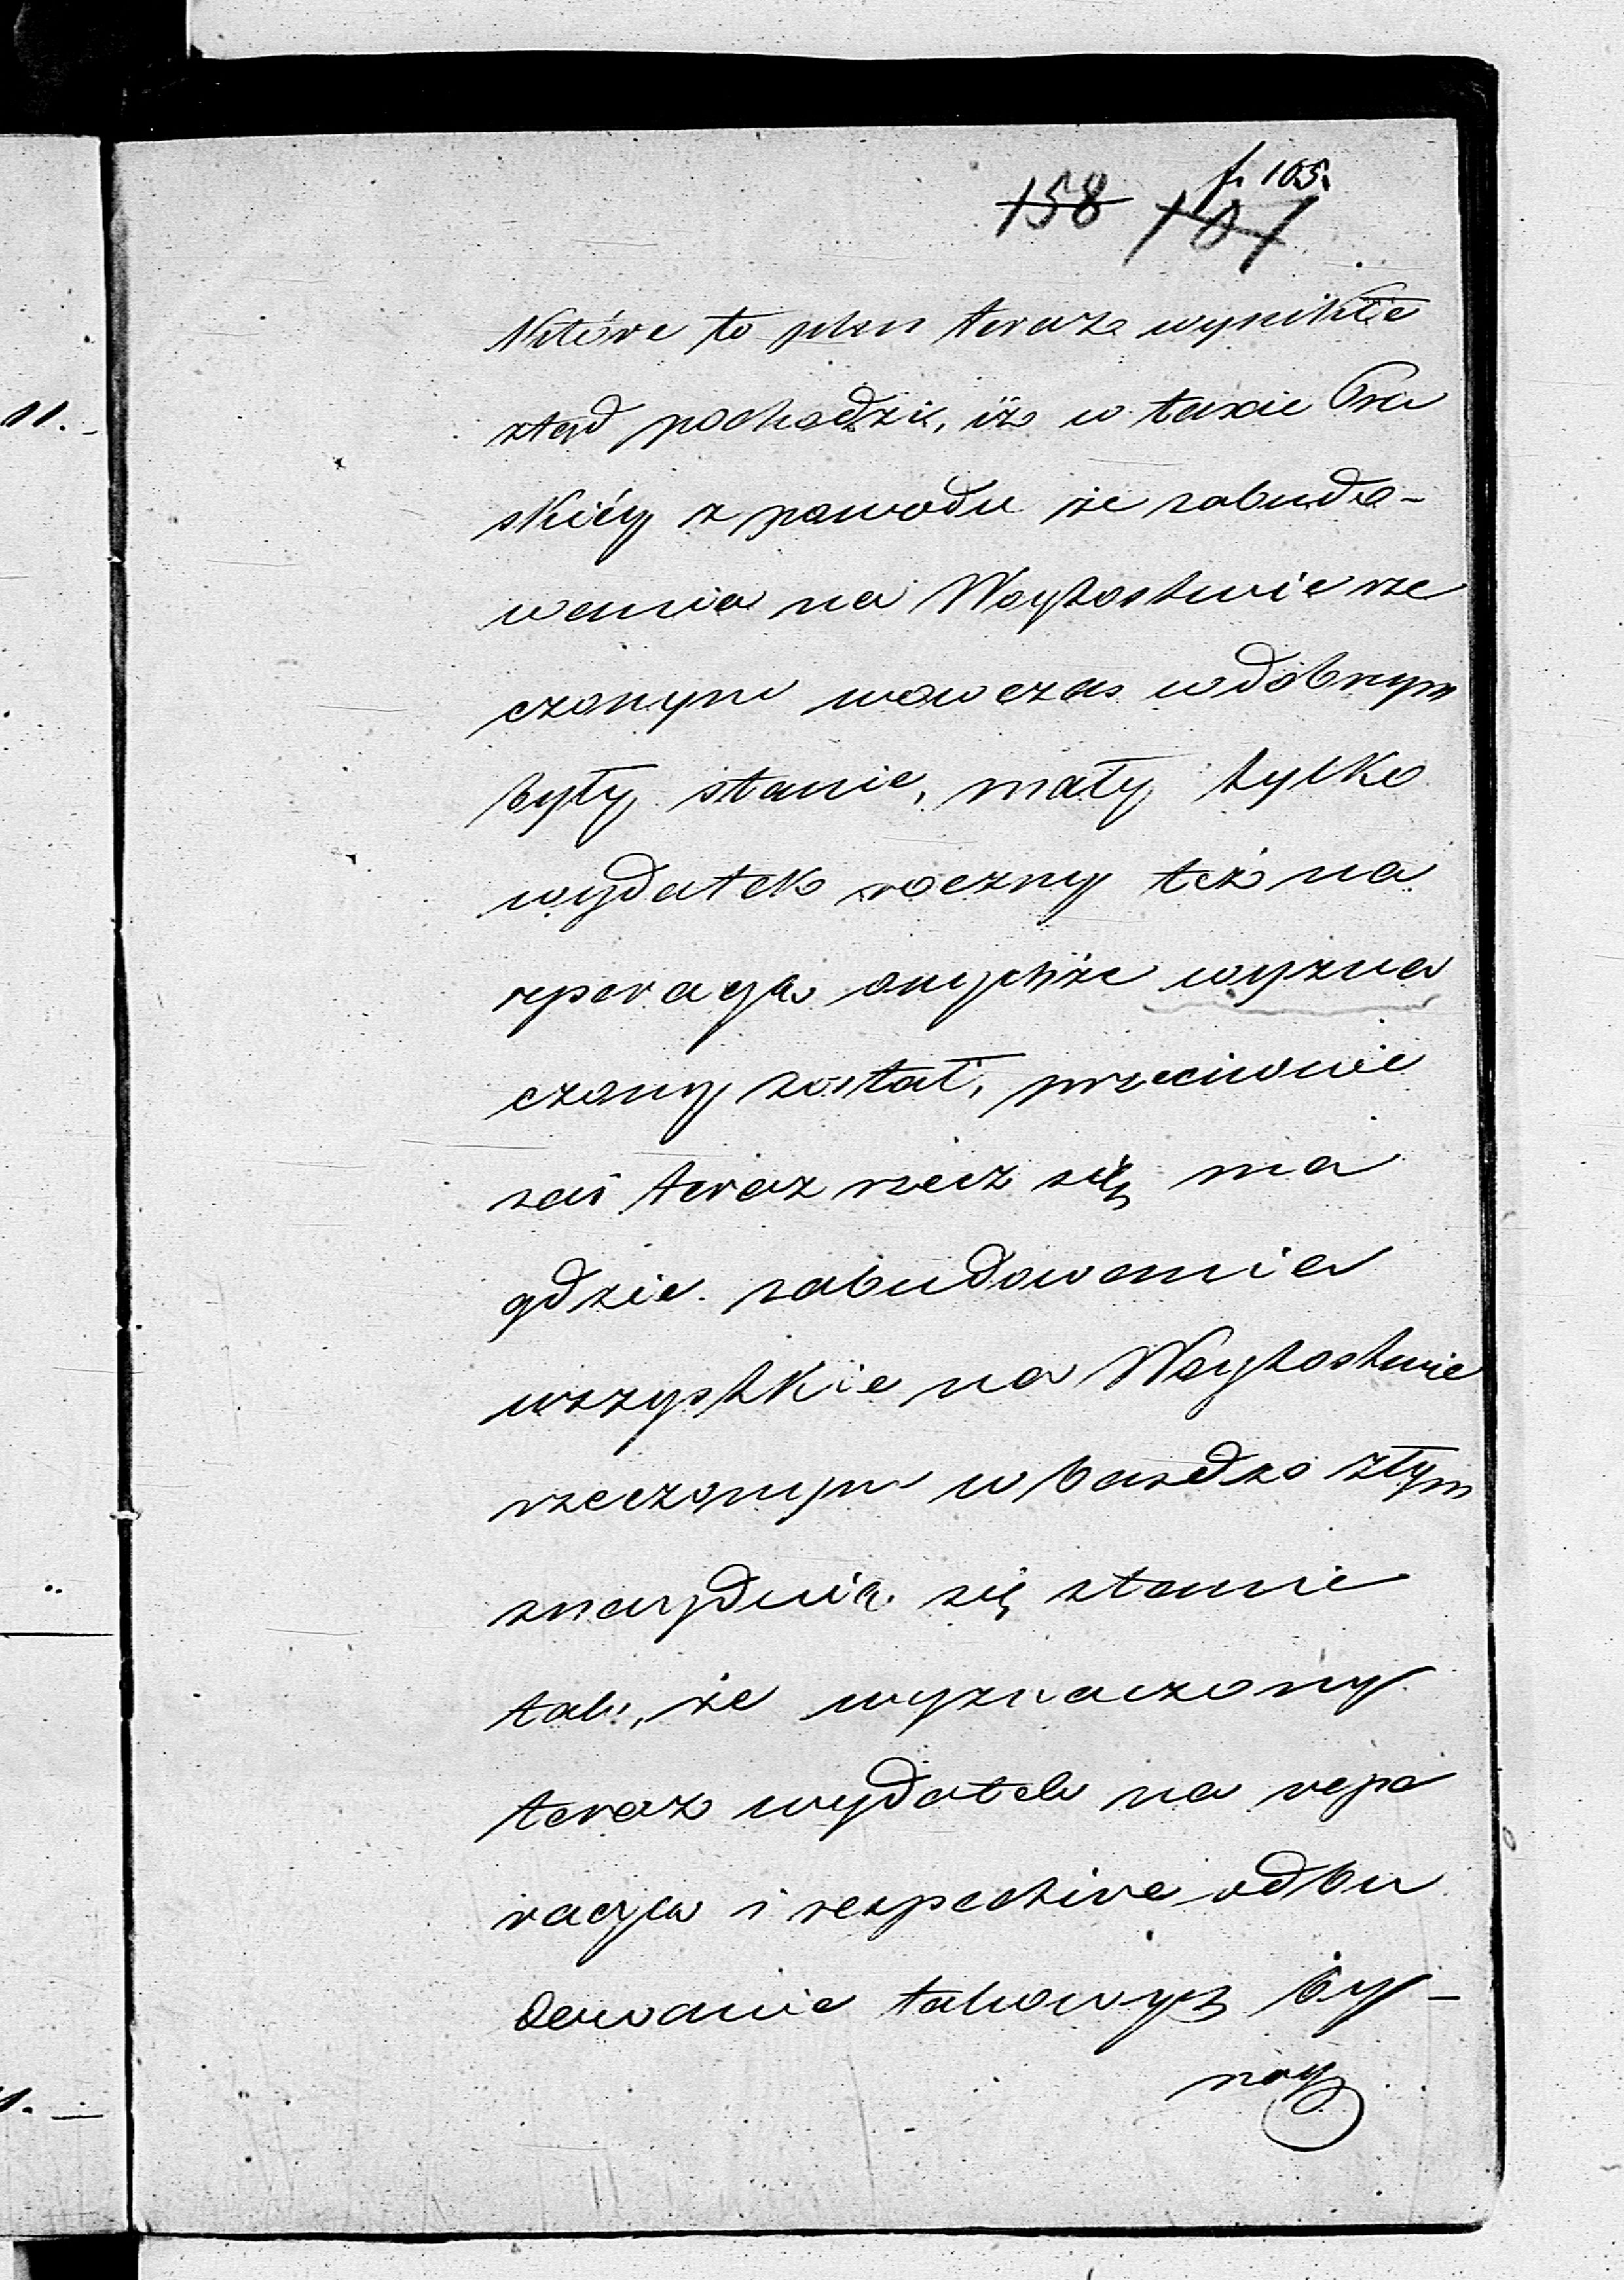 11.
f. 105.
158 107
Które to plus teraz wynikłe
ztąd pochodzi, iż w taxie Pru
skiéy z powodu że zabudo-
wania na Woytostwie rze
czonym wówczas w dobrym
były stanie, mały tylko
wydatek roczny też na
reperacyą onychże wyzna
czony został, przeciwnie
zaś teraz rzecz się ma
gdzie zabudowania
wszystkie na Woytostwie
rzeczonym w bardzo złym
znayduią się stanie
tak, że wyznaczony
teraz wydatek na repe
racyą i respective odbu
dowanie takowych by-
nay